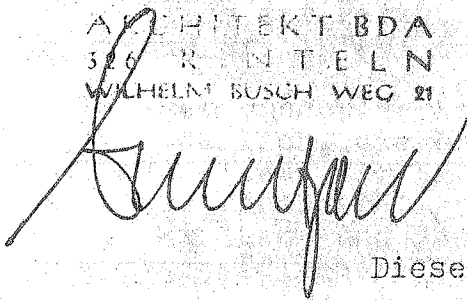 ARCHITEKT BDA
326 RINTELN
WILHELM BUSCH WEG 21
Diese